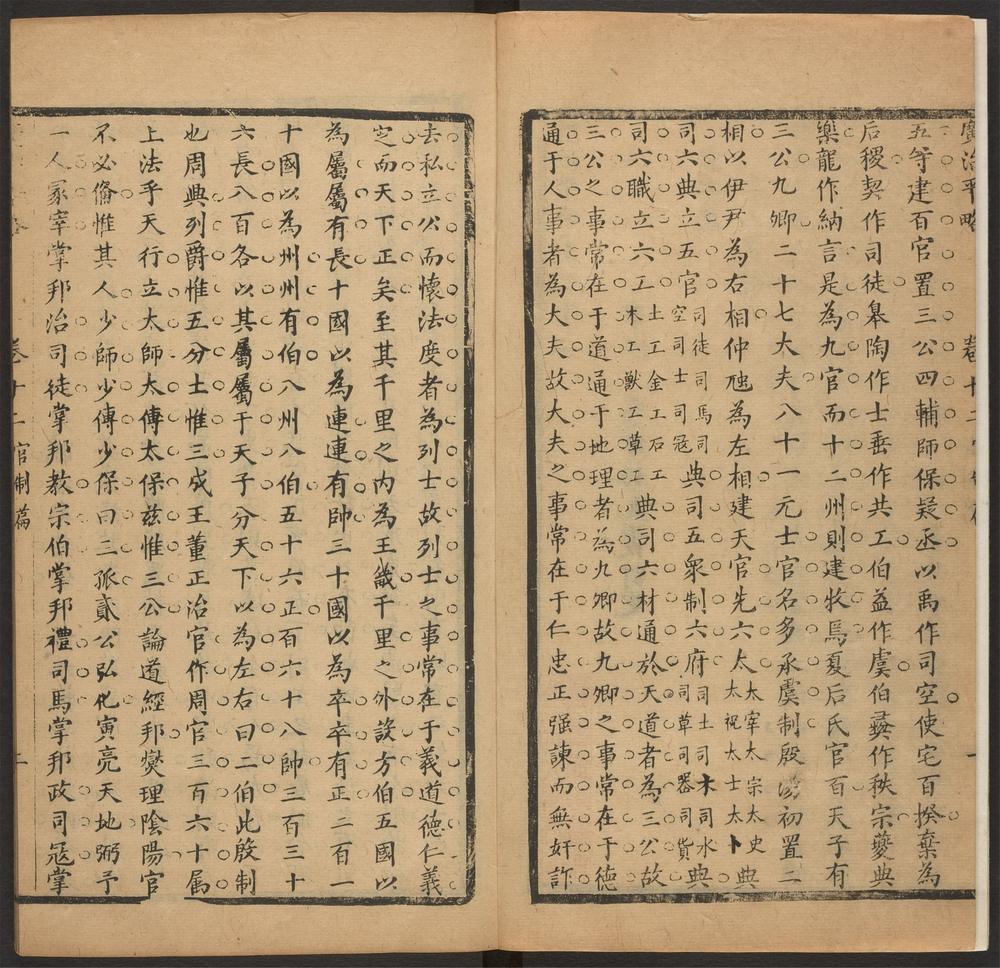 廣治平略 卷十二官制篇 一
五等建百官置三公四輔師保疑丞以禹作司空使宅百揆棄為
后稷契作司徒皋陶作士垂作共工伯益作虞伯彝作秩宗夔典
樂龍作納言是為九官而十二州則建牧焉夏后氏官百天子有
三公九卿二十七大夫八十一元士官名多承虞制殷湯初置二
相以伊尹為右相仲虺為左相建天官先六太太宰太宗太史太祝太士太卜典
司六典立五官司徒司馬司空司士司冦典司五衆制六府司土司木司水司草司器司貨典
司六職立六工土工金工石工木工獸工草工典司六材通於天道者為三公故
三公之事常在于道通于地理者為九卿故九卿之事常在于德
通于人事者為大夫故大夫之事常在于仁忠正强諫而無奸詐
去私立公而懷法度者為列士故列士之事常在于義道德仁義
定而天下正矣至其千里之内為王畿千里之外設方伯五國以
為屬屬有長十國以為連連有帥三十國以為卒卒有正二百一
十國以為州州有伯八州八伯五十六正百六十八帥三百三十
六長八百各以其屬屬于天子分天下以為左右曰二伯此殷制
也周典列爵惟五分土惟三成王董正治官作周官三百六十属
上法乎天行立太師太傅太保兹惟三公論道經邦燮理陰陽官
不必偹惟其人少師少傅少保曰三孤貳公弘化寅亮天地弼予
一人冢宰掌邦治司徒掌邦教宗伯掌邦禮司馬掌邦政司冦掌
卷十二官制篇 二